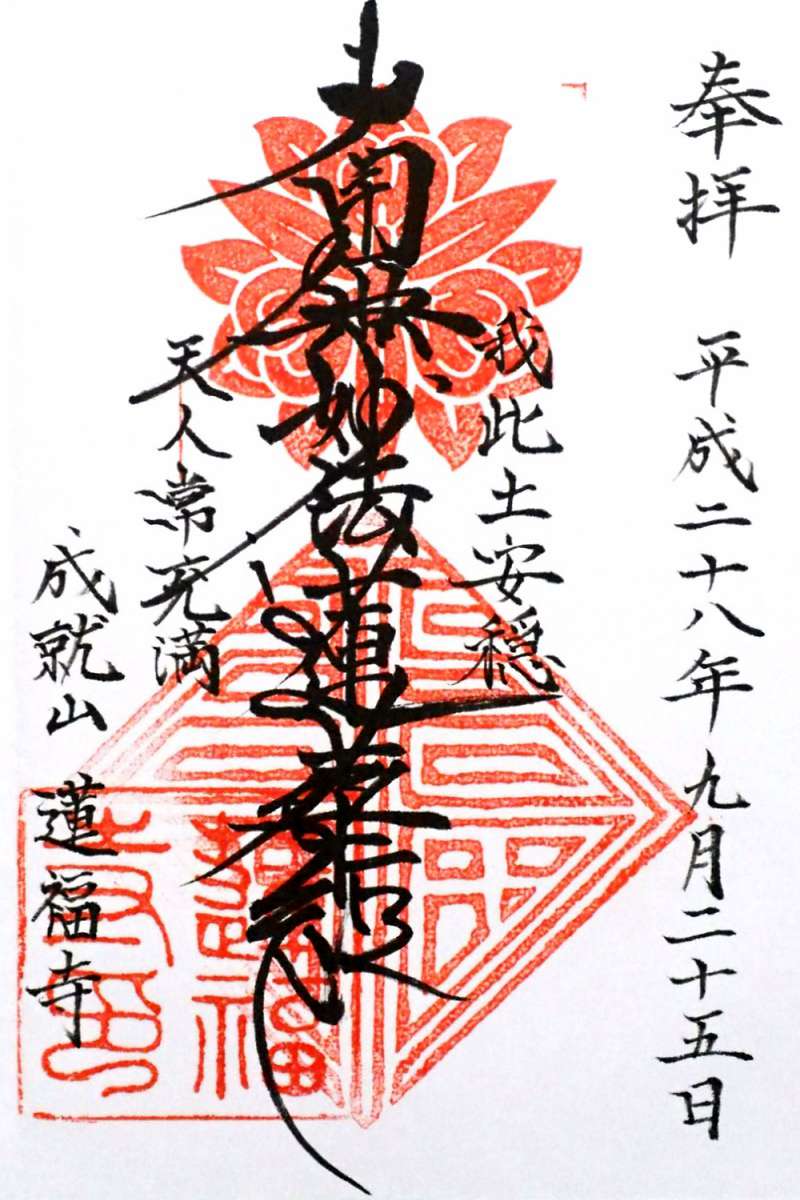 奉拝 平成二十八年九月二十五日
我此土安穏
南無妙法蓮華経
天人常充満
成就山 蓮福寺
蓮福寺印